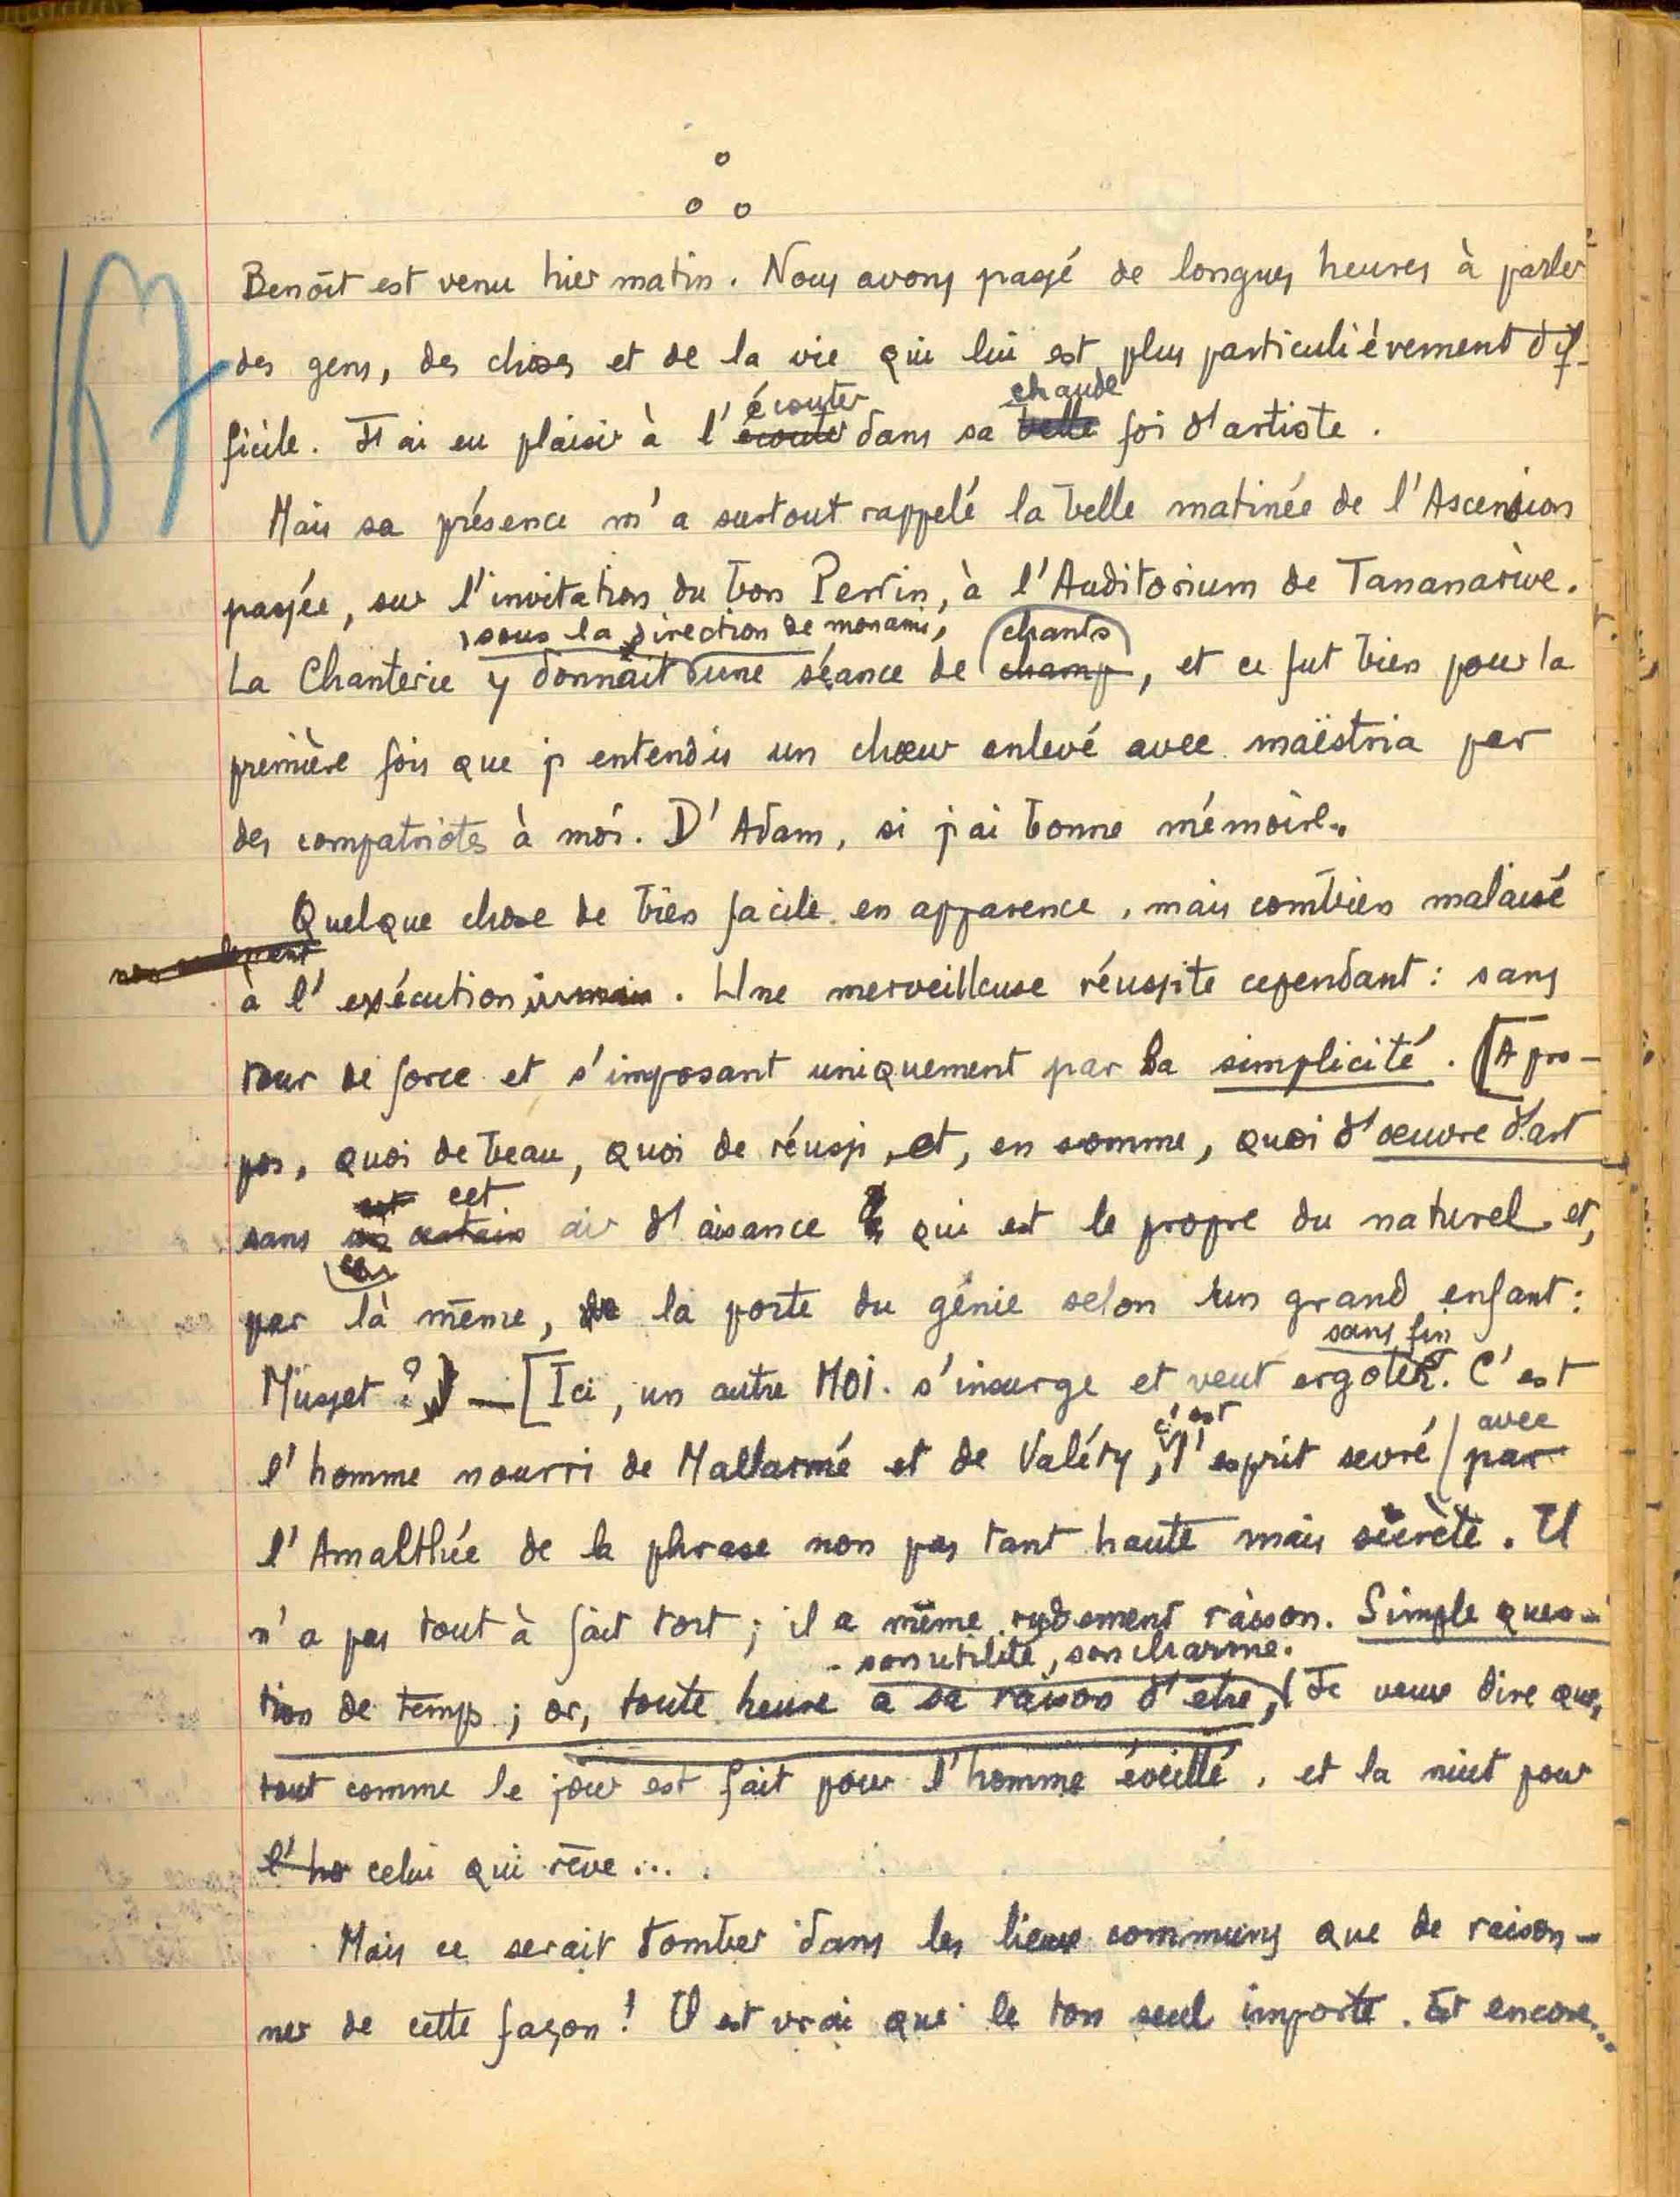 167
Benoît est venu hier matin. Nous avons passé de longues heures à parler
des gens, des choses et de la vie qui lui est plus particulièrement dif-
écouter chaude
ficile. J'ai eu plaisir à l'écouter dans sa belle foi d'artiste.
Mais sa présence m'a surtout rappelé la belle matinée de l'Ascension
passée, sur l'invitation du bon Perrin, à l'Auditorium de Tananarive.
, sous la direction de mon ami, chants
La Chanterie y donnait une séance de champs, et ce fut bien pour la
première fois que j'entendis un chœur enlevé avec maëstria par
des compatriotes à moi. D'Adam, si j'ai bonne mémoire.
Quelque chose de bien facile en apparence, mais combien malaisé
à l'exécution. Une merveilleuse réussite cependant: sans
tour de force et s'imposant uniquement par sa simplicité. [A pro-
pos, quoi de beau, quoi de réussi, et, en somme, quoi d'œuvre d'art
est cet
sans un certain air d'aisance qui est le propre du naturel et,
par là même, de la porte du génie selon un grand enfant:
sans fin
Musset ?) — [Ici, un autre MOI s'insurge et veut ergoter. C'est
c'est avec
l'homme nourri de Mallarmé et de Valéry, l'esprit sevré par
l'Amalthée de la phrase non pas tant haute mais secrète. Il
n'a pas tout à fait tort; il a même rudement raison. Simple ques-
son utilité, son charme.
tion de temps; or, toute heure a sa raison d'etre, (Je veux dire que,
tout comme le jour est fait pour l'homme éveillé, et la nuit pour
l'ho celui qui rêve...
Mais ce serait tomber dans les lieux communs que de raison-
ner de cette façon! Il est vrai que le ton seul importe. Et encore...